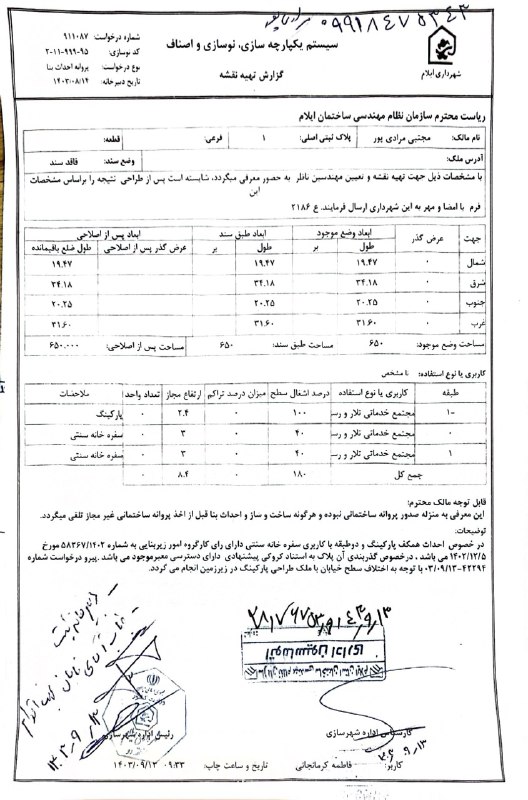 ۰۹۹۱۸۴۷۵۳۴۳
سیستم یکپارچه سازی، نوسازی و اصناف
گزارش تهیه نقشه
شهرداری ایلام
شماره درخواست: ۹۱۱۰۸۷
کد نوسازی: ۲-۱۱-۹۹۹-۹۵
نوع درخواست: پروانه احداث بنا
تاریخ دبیرخانه: ۱۴۰۳/۰۸/۱۴
ریاست محترم سازمان نظام مهندسی ساختمان ایلام
نام مالک: مجتبی مرادی پور پلاک ثبتی اصلی: ۱ فرعی: قطعه:
آدرس ملک: وضع سند: فاقد سند
با مشخصات ذیل جهت تهیه نقشه و تعیین مهندسین ناظر به حضور معرفی میگردد، شایسته است پس از طراحی نتیجه را براساس مشخصات
این
فرم با امضا و مهر به این شهرداری ارسال فرمایند. ع ۲۱۸۶
جهت عرض گذر ابعاد وضع موجود ابعاد طبق سند ابعاد پس از اصلاحی
طول بر طول بر عرض گذر پس از اصلاحی طول ضلع باقیمانده
شمال ۰ ۱۹.۴۷ ۱۹.۴۷ ۱۹.۴۷
شرق ۰ ۳۴.۱۸ ۳۴.۱۸ ۳۴.۱۸
جنوب ۰ ۲۰.۲۵ ۲۰.۲۵ ۲۰.۲۵
غرب ۰ ۳۱.۶۰ ۳۱.۶۰ ۳۱.۶۰
مساحت وضع موجود: ۶۵۰ مساحت طبق سند: ۶۵۰ مساحت پس از اصلاحی: ۶۵۰.۰۰۰
کاربری یا نوع استفاده: نا مشخص
طبقه کاربری یا نوع استفاده درصد اشغال سطح میزان درصد تراکم ارتفاع مجاز تعداد واحد ملاحضات
-۱ مجتمع خدماتی تالار و رس ۱۰۰ ۰ ۲.۴ ۰ پارکینگ
۰ مجتمع خدماتی تالار و رس ۴۰ ۰ ۳ ۰ سفره خانه سنتی
۱ مجتمع خدماتی تالار و رس ۴۰ ۰ ۳ ۰ سفره خانه سنتی
جمع کل ۱۸۰ ۰ ۸.۴
قابل توجه مالک محترم:
این معرفی به منزله صدور پروانه ساختمانی نبوده و هرگونه ساخت و ساز و احداث بنا قبل از اخذ پروانه ساختمانی غیر مجاز تلقی میگردد.
توضیحات:
در خصوص احداث همکف پارکینگ و دوطبقه با کاربری سفره خانه سنتی دارای رای کارگروه امور زیربنایی به شماره ۵۸۳۶۷/۱۴۰۲ مورخ
۱۴۰۲/۱۲/۵ می باشد ، درخصوص گذربندی آن پلاک به استناد کروکی پیشنهادی دارای دسترسی معبرموجود می باشد .پیرو درخواست شماره
۴۲۲۹۴-۰۳/۰۹/۱۳ با توجه به اختلاف سطح خیابان با ملک طراحی پارکینگ در زیرزمین انجام می گردد.
اتوماسیون اداری
کارشناس اداره شهرسازی
رئیس اداره شهرسازی
۱۴۰۳،۹،۱۳
کاربر: فاطمه کرمانجانی تاریخ و ساعت چاپ: ۰۹:۳۳ ۱۴۰۳/۰۹/۱۳